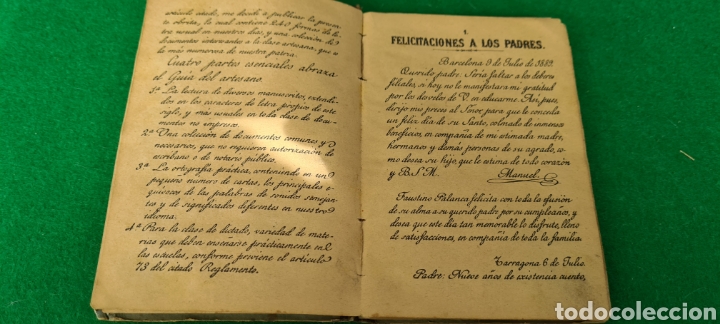 artículo citado, me decido a publicar la presente
obrita, la cual contiene 240 formas de le-
tras usual en nuestros días, y una colección de
documentos interesantes a la clase artesana, que es
la más numerosa de nuestra patria.
Cuatro partes esenciales abraza
el Guía del artesano.
1ª La lectura de diversos manuscritos, extendi-
dos en los caracteres de letra propios de este
siglo, y más usuales en toda clase de docu-
mentos no impresos.
2ª Una colección de documentos comunes y
necesarios, que no requieren autorización de
escribano o de notario público.
3ª La ortografía práctica, conteniendo en un
pequeño número de cartas, los principales e-
quívocos de las palabras de sonidos semejan-
tes y de significados diferentes en nuestro
idioma.
4ª Para la clase de dictado, variedad de mate-
rias que deben enseñarse prácticamente en
las escuelas, conforme previene el artículo
73 del citado Reglamento.
1.
FELICITACIONES A LOS PADRES.
Barcelona 9 de Julio de
Querido padre: Sería faltar a los deberes
filiales, si hoy no le manifestara mi gratitud
por los desvelos de V. en educarme. Así, pues,
dirijo mis preces al Señor para que le conceda
un feliz día de su Santo, colmado de inmensos
beneficios, en compañía de mi estimada madre,
hermano y demás personas de su agrado, co-
mo desea su hijo, que le estima de todo corazón
y B. S. M. Manuel.
Faustino Palanca felicita con toda la efusión
de su alma a su querido padre por su cumpleaños, y
desea que este día tan memorable lo disfrute, lleno
de satisfacciones, en compañía de toda la familia.
Tarragona 6 de Julio.
Padre: Nueve años de existencia cuento,
todocoleccion
todocoleccion.net